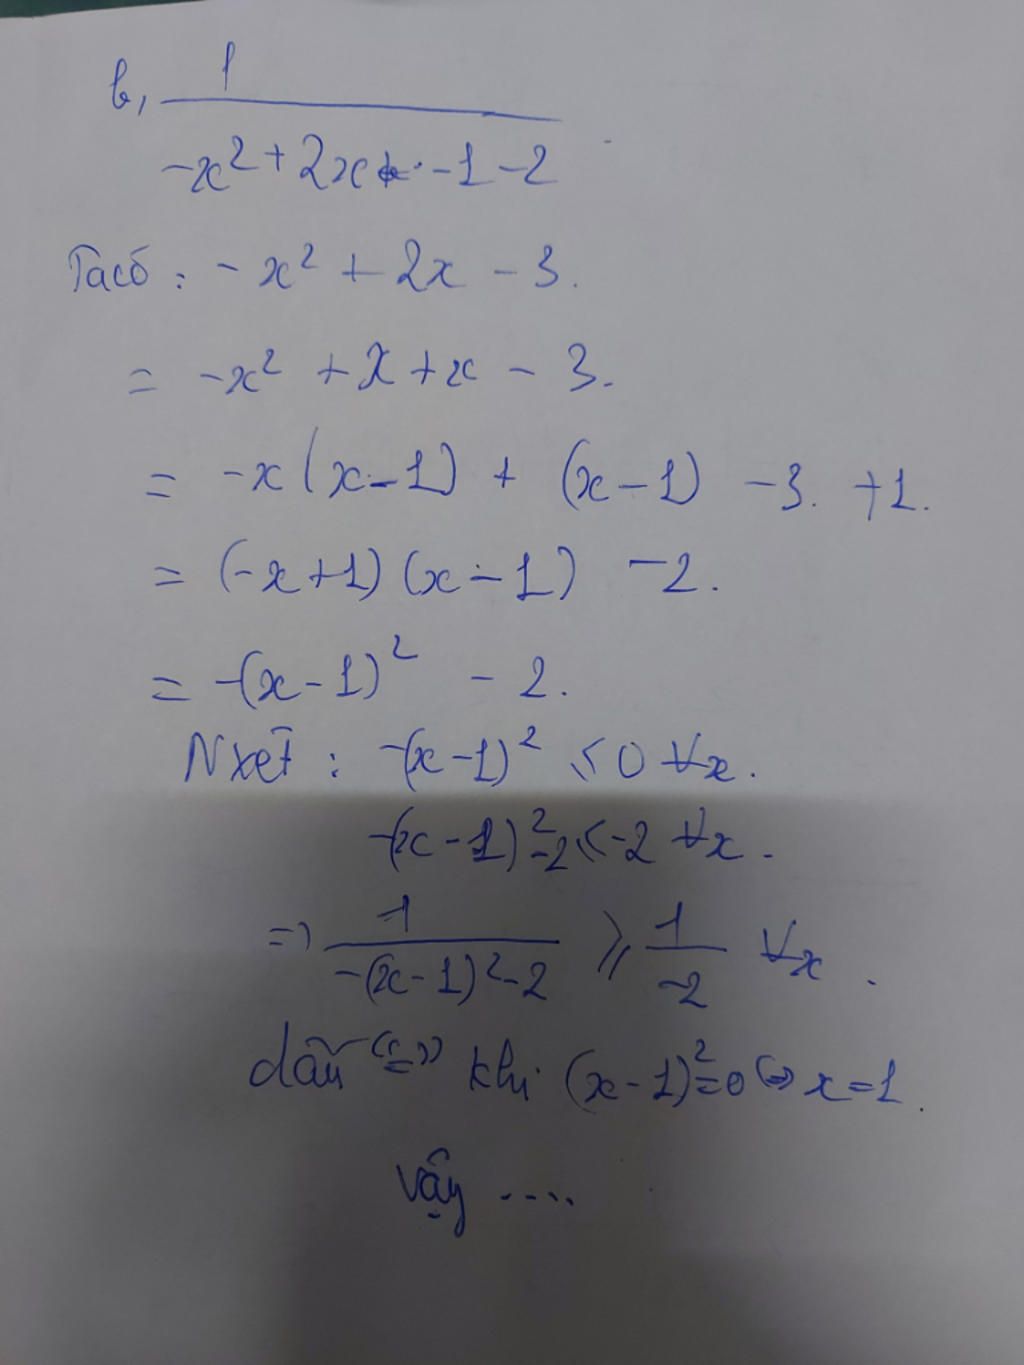 b, 1 / (-x² + 2x - 1 - 2)
Ta có : - x² + 2x - 3.
= -x² + x + x - 3.
= -x(x-1) + (x-1) -3. +1.
= (-x+1)(x-1) -2.
= -(x-1)² - 2.
Nxét : -(x-1)² ≤ 0 ∀x.
-(x-1)² -2 ≤ -2 ∀x.
=> 1 / (-(x-1)² -2) ≥ 1 / -2 ∀x.
dấu "=" khi (x-1)² = 0 <=> x = 1.
Vậy ....